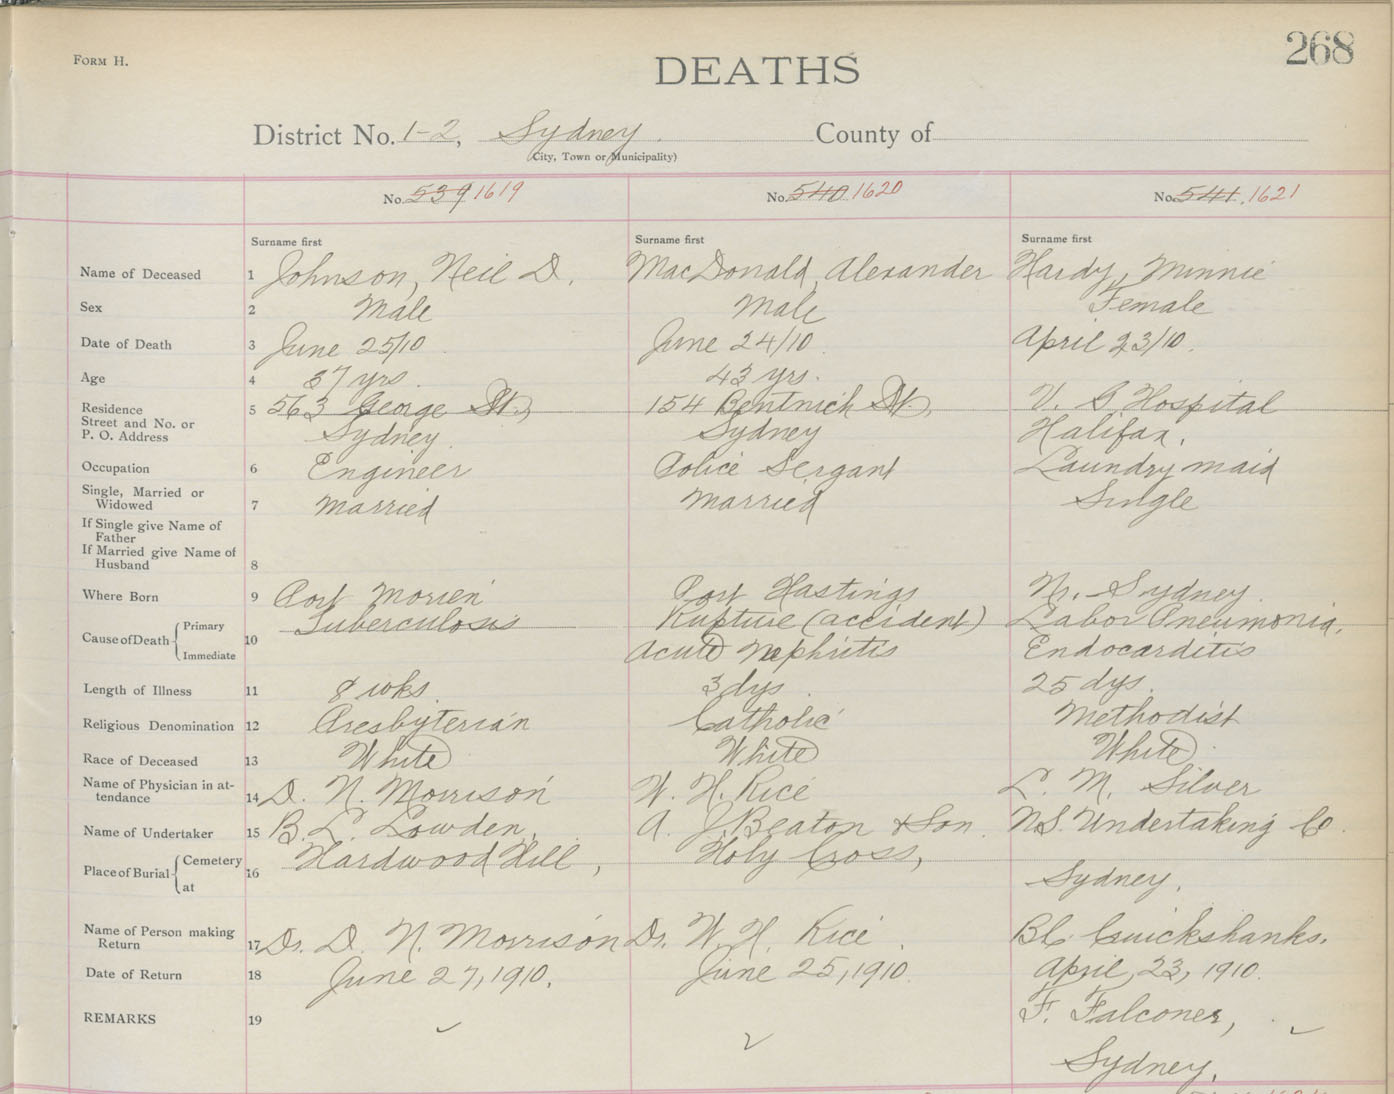 FORM H.
268
DEATHS
District No. 1-2, Sydney County of
(City, Town or Municipality)
No. 539 1619 No. 540 1620 No. 541 1621
Surname first Surname first Surname first
Name of Deceased 1 Johnson, Neil D. MacDonald, Alexander Hardy, Minnie
Sex 2 Male Male Female
Date of Death 3 June 25/10 June 24/10 April 23/10.
Age 4 37 yrs. 43 yrs.
Residence
Street and No. or
P. O. Address
5 563 George St., 154 Bentnich St., V. G Hospital
Sydney. Sydney Halifax.
Occupation 6 Engineer Police Sergant Laundry maid
Single, Married or
Widowed 7 Married Married Single
If Single give Name of
Father
If Married give Name of
Husband 8
Where Born 9 Port Morien Port Hastings No. Sydney.
Cause of Death Primary
Immediate 10
Tuberculosis Rupture (accident) Labor Pneumonia,
Acute Nephritis Endocarditis
Length of Illness 11 8 wks. 3 dys. 25 dys.
Religious Denomination 12 Presbyterian Catholic Methodist
Race of Deceased 13 White White White
Name of Physician in at-
tendance 14 D. N. Morrison W. H. Rice L. M. Silver
Name of Undertaker 15 B. L. Lowden, A. J. Beaton & Son. NS. Undertaking Co.
Place of Burial Cemetery
at 16
Hardwood Hill, Holy Cross,
Sydney.
Name of Person making
Return 17 Dr. D. N. Morrison Dr. W. H. Rice. BC Cruickshanks.
Date of Return 18 June 27, 1910. June 25, 1910. April, 23, 1910.
REMARKS 19 F. Falconer,
Sydney.